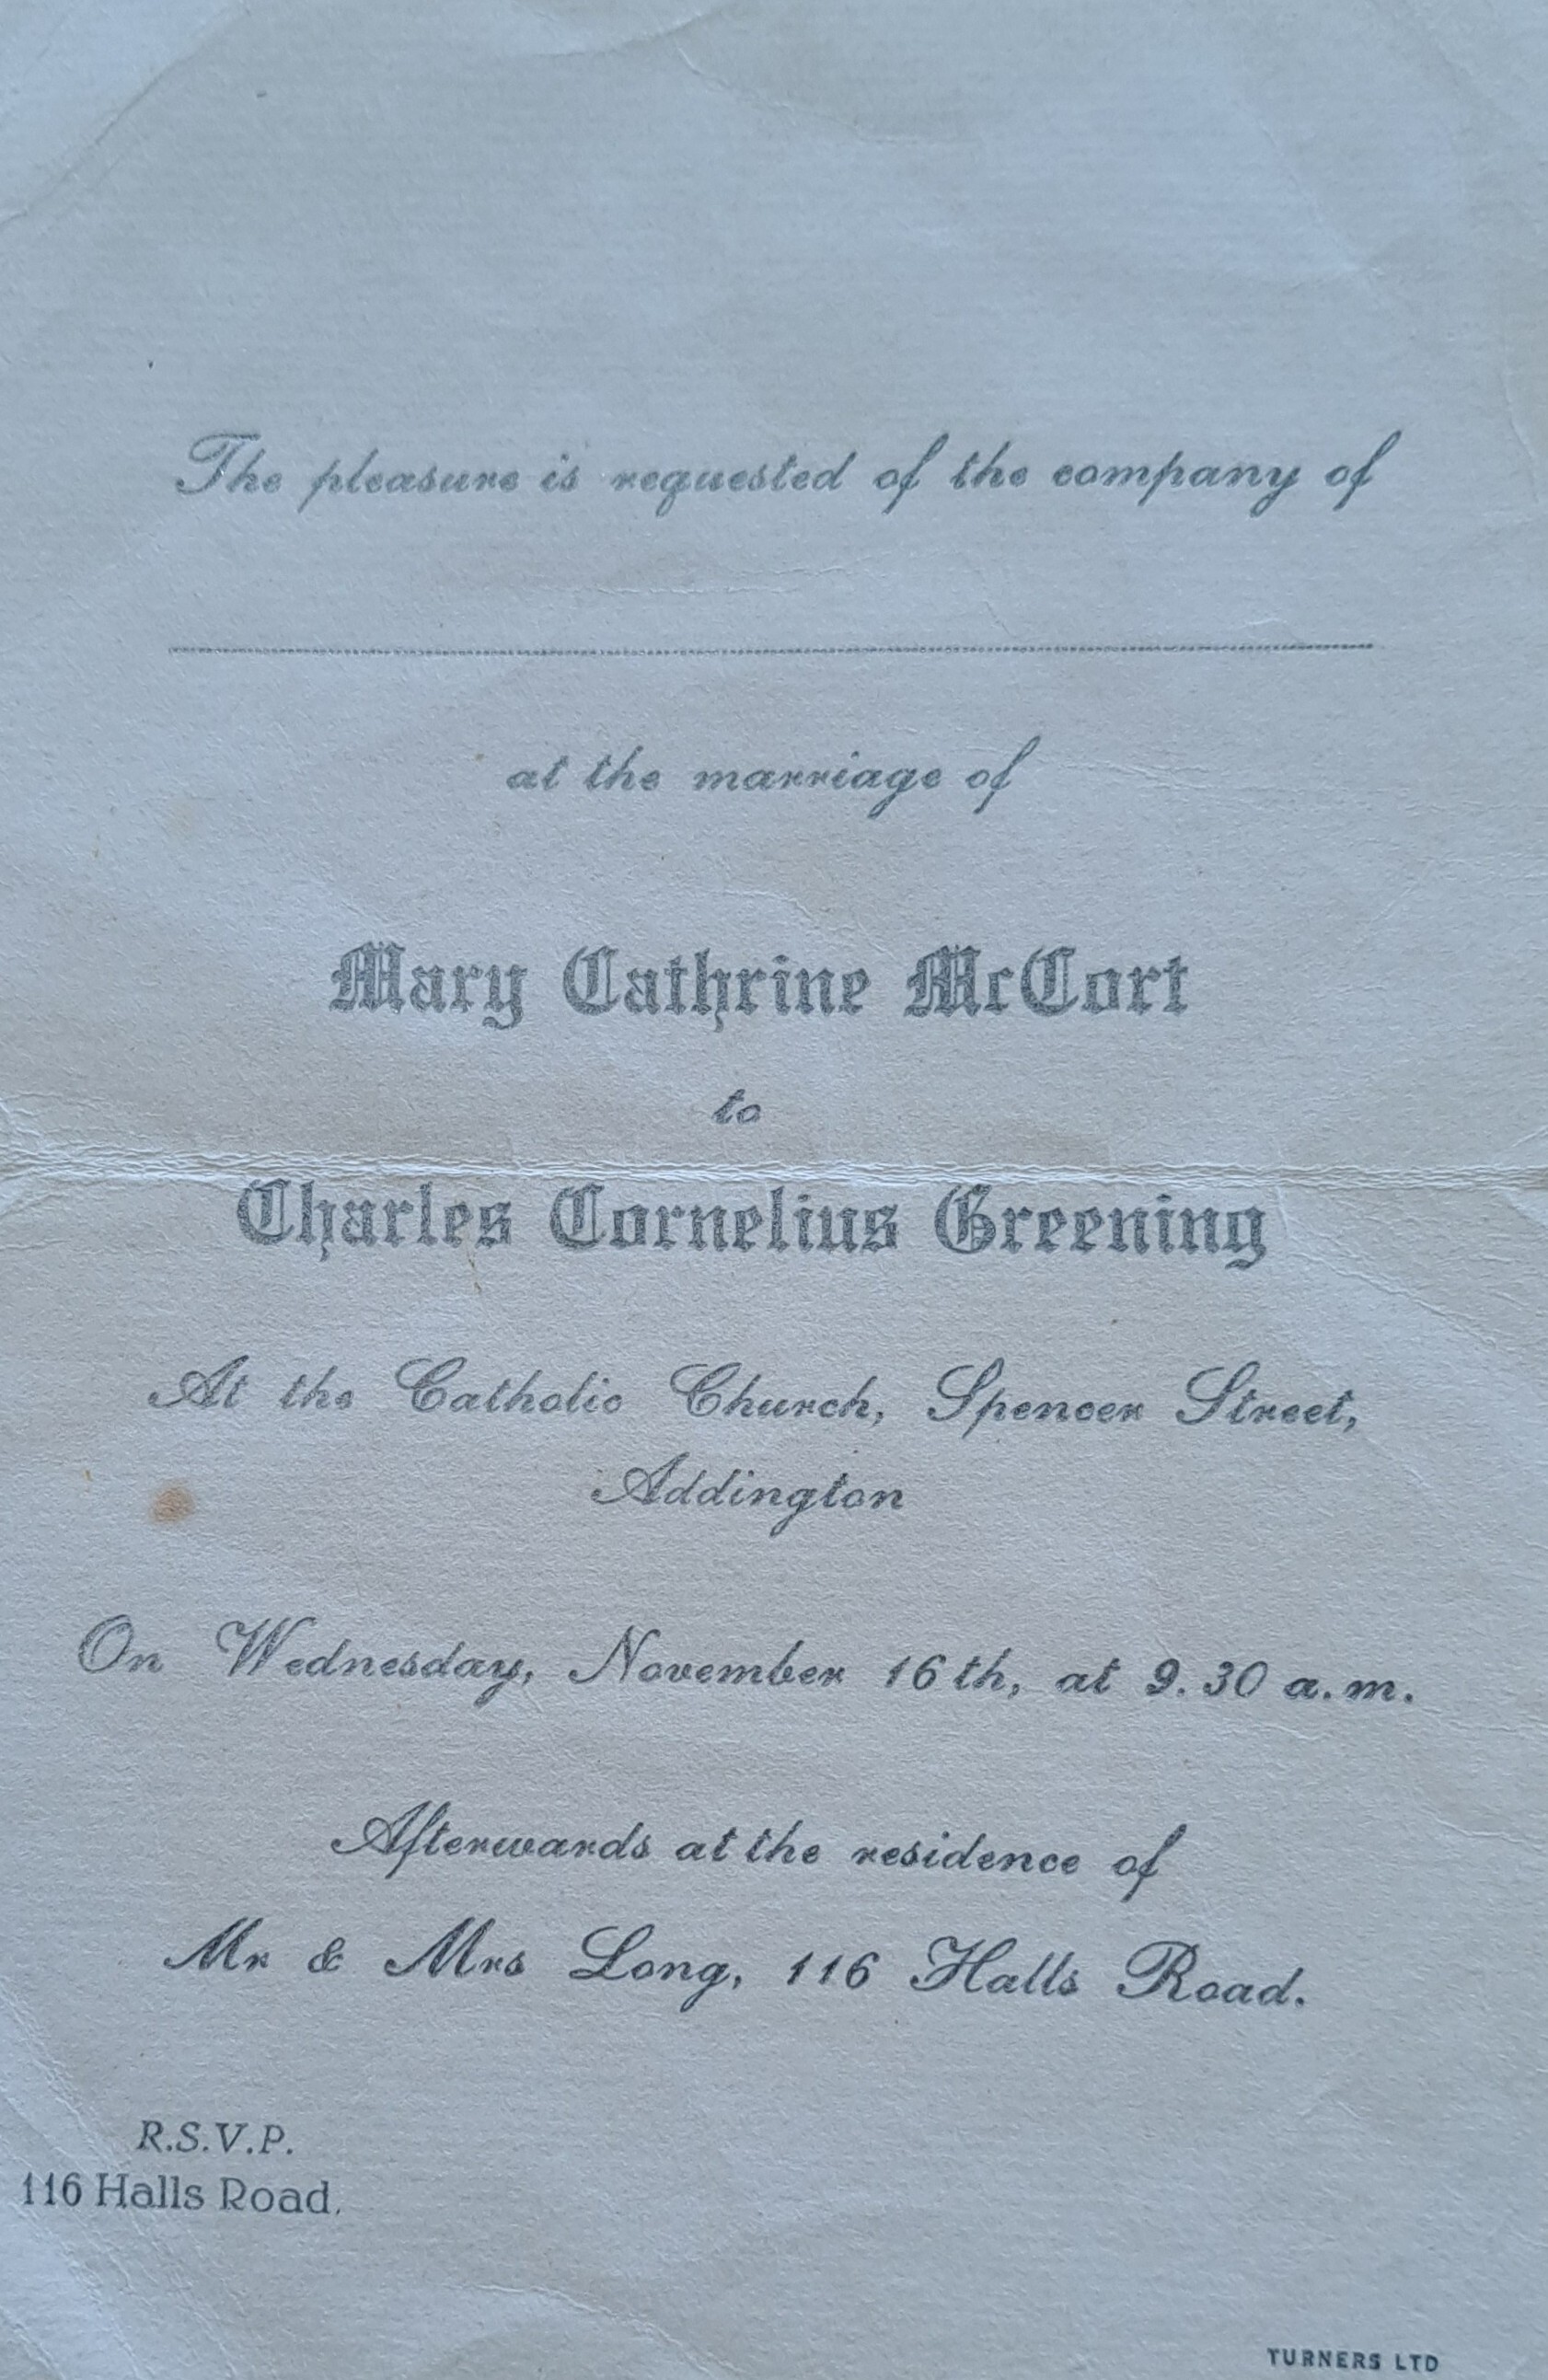 The pleasure is requested of the company of
at the marriage of
Mary Cathrine McCort
to
Charles Cornelius Greening
At the Catholic Church, Spencer Street,
Addington
On Wednesday, November 16th, at 9.30 a.m.
Afterwards at the residence of
Mr & Mrs Long, 116 Halls Road.
R.S.V.P.
116 Halls Road.
TURNERS LTD